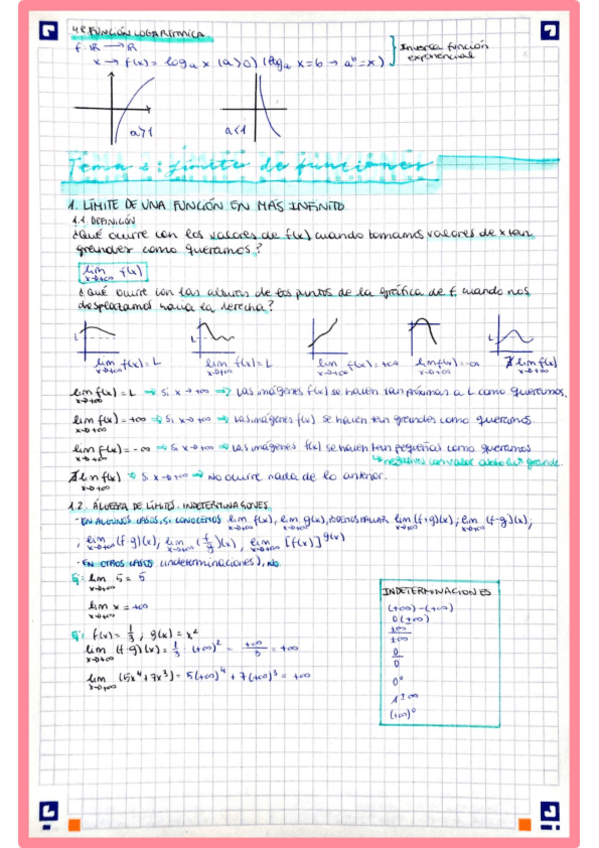 4.8 FUNCIÓN LOGARÍTMICA
f: ℝ → ℝ
x → f(x) = logₐ x (a>0) (logₐ x = b → aᵇ = x)
Inversa función
exponencial
a>1
a<1
Tema 2: límite de funciones
1. LÍMITE DE UNA FUNCIÓN EN MÁS INFINITO
1.1 DEFINICIÓN
¿Qué ocurre con los valores de f(x) cuando tomamos valores de x tan
grandes como queramos?
lim f(x)
x→+∞
¿Qué ocurre con las alturas de los puntos de la gráfica de f cuando nos
desplazamos hacia la derecha?
L
L
L
lim f(x) = L
x→+∞
lim f(x) = L
x→+∞
lim f(x) = +∞
x→+∞
lim f(x) = -∞
x→+∞
∄ lim f(x)
x→+∞
lim f(x) = L → Si x→+∞ → Las imágenes f(x) se hacen tan próximas a L como queramos.
x→+∞
lim f(x) = +∞ → Si x→+∞ → Las imágenes f(x) se hacen tan grandes como queramos
x→+∞
lim f(x) = -∞ → Si x→+∞ → Las imágenes f(x) se hacen tan pequeñas como queramos
x→+∞
negativos con valor absoluto grande.
∄ lim f(x) → Si x→+∞ → No ocurre nada de lo anterior.
x→+∞
1.2. ÁLGEBRA DE LÍMITES. INDETERMINACIONES
- EN ALGUNOS CASOS, SI CONOCEMOS lim f(x), lim g(x), PODEMOS HALLAR lim (f+g)(x), lim (f-g)(x),
x→+∞ x→+∞ x→+∞ x→+∞
, lim (f·g)(x), lim (f/g)(x), lim [f(x)]^g(x)
x→+∞ x→+∞ x→+∞
- EN OTROS CASOS (indeterminaciones), NO
Ej: lim 5 = 5
x→+∞
lim x = +∞
x→+∞
Ej: f(x) = 1/3, g(x) = x²
lim (f·g)(x) = 1/3 · (+∞)² = +∞/3 = +∞
x→+∞
lim (5x⁴+7x³) = 5(+∞)⁴ + 7(+∞)³ = +∞
x→+∞
INDETERMINACIONES
(+∞)-(+∞)
0(±∞)
±∞/±∞
0/0
0⁰
1^±∞
(+∞)⁰